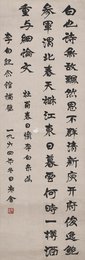 白也詩無敵飄然思不群清新庾開府俊逸鮑
參軍渭北春天樹江東日暮雲何時一樽酒
重與細論文 杜甫春日憶李白
李白紀念館補壁
一九六四年冬日老舍